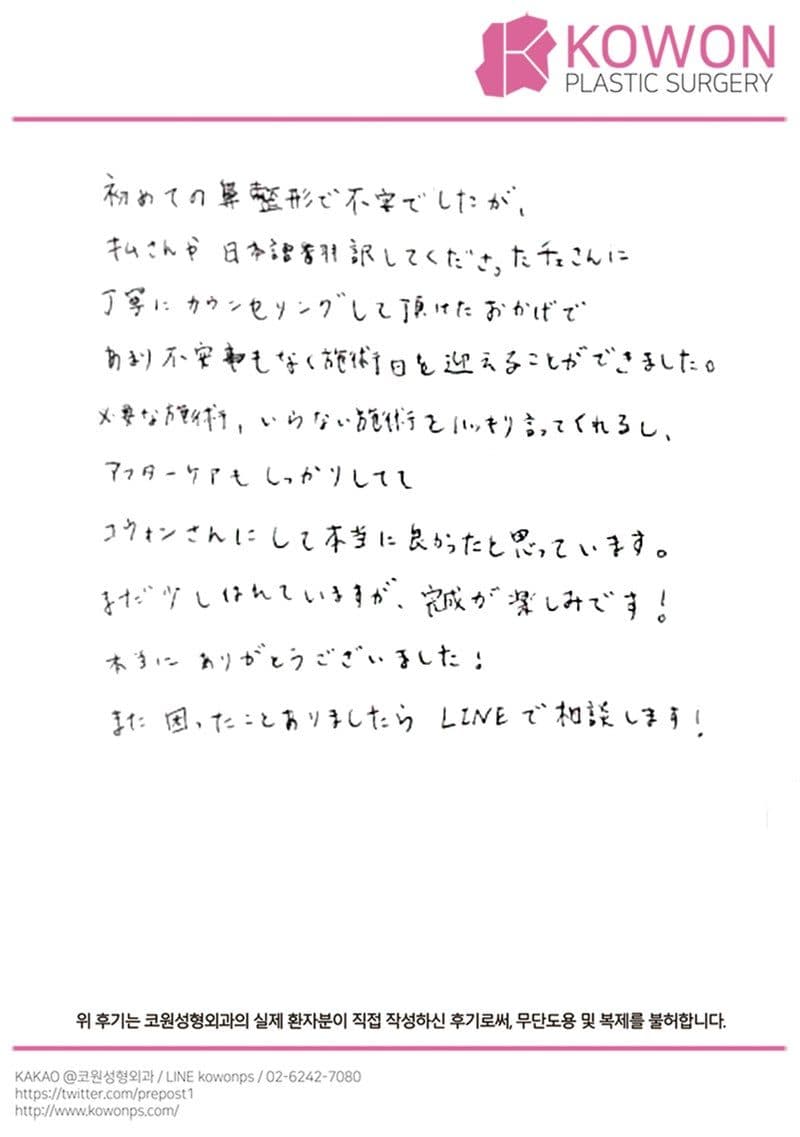 KOWON
PLASTIC SURGERY
初めての鼻整形で不安でしたが、
キムさんや 日本語翻訳してくださったチェさんに
丁寧に カウンセリングして頂けた おかげで
あまり不安もなく施術日を迎えることができました。
必要な施術、いらない施術をハッキリ言ってくれるし、
アフターケアも しっかりしてて
コウォンさんにして本当に良かったと思っています。
まだ少しはれていますが、完成が楽しみです!
本当に ありがとうございました!
また 困ったことありましたら LINEで相談します!
위 후기는 코원성형외과의 실제 환자분이 직접 작성하신 후기로써, 무단도용 및 복제를 불허합니다.
KAKAO @코원성형외과 / LINE kowonps / 02-6242-7080
https://twitter.com/prepost1
http://www.kowonps.com/